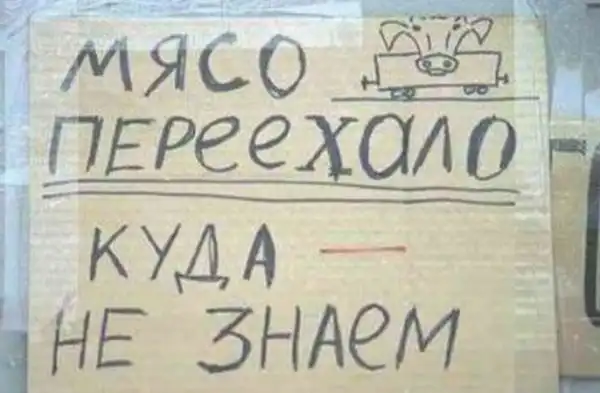 МЯСО
ПЕРеехАЛО
КУДА —
НЕ ЗНАеМ